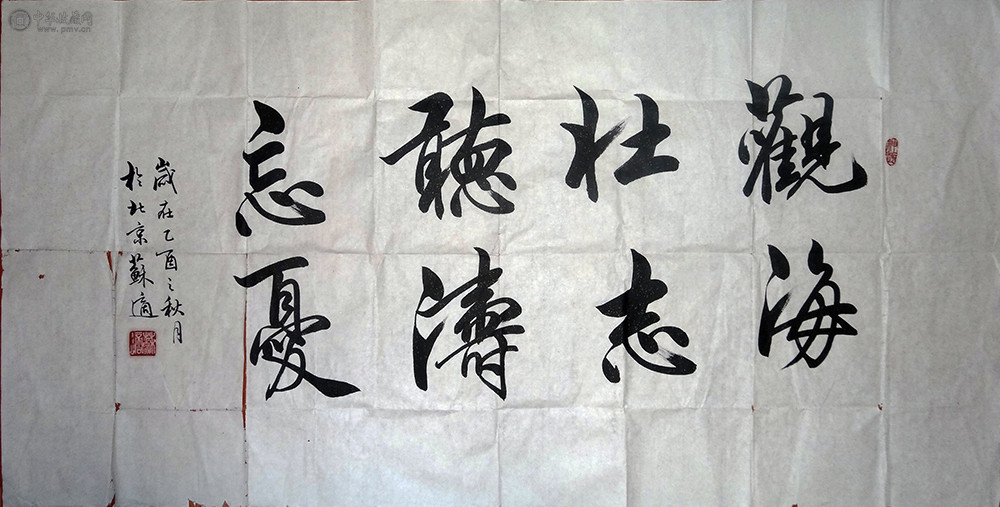 觀海
壯志
聽濤
忘憂
歲在乙酉之秋月
於北京蘇適
中华收藏网
www.pmv.cn